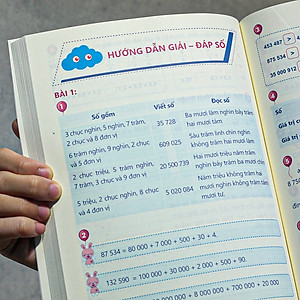 HƯỚNG DẪN GIẢI – ĐÁP SỐ
BÀI 1:
1
Số gồm Viết số Đọc số
3 chục nghìn, 5 nghìn, 7 trăm, 35 728 Ba mươi lăm nghìn bảy trăm
2 chục và 8 đơn vị hai mươi tám.
6 trăm nghìn, 9 nghìn, 2 chục 609 025 Sáu trăm linh chín nghìn
và 5 đơn vị không trăm hai mươi lăm.
2 chục triệu, 5 trăm nghìn, 20 500 739 Hai mươi triệu năm trăm
7 trăm, 3 chục và 9 đơn vị nghìn bảy trăm ba mươi chín.
5 triệu, 2 chục nghìn, 8 chục 5 020 084 Năm triệu không trăm hai
và 4 đơn vị mươi nghìn không trăm tám
mươi tư.
2
87 534 = 80 000 + 7 000 + 500 + 30 + 4.
132 590 = 100 000 + 30 000 + 2 000 + 500 + 90.
3
453 487 >
875 534 >
35 000 912
4
Số
Giá trị
Giá trị
5